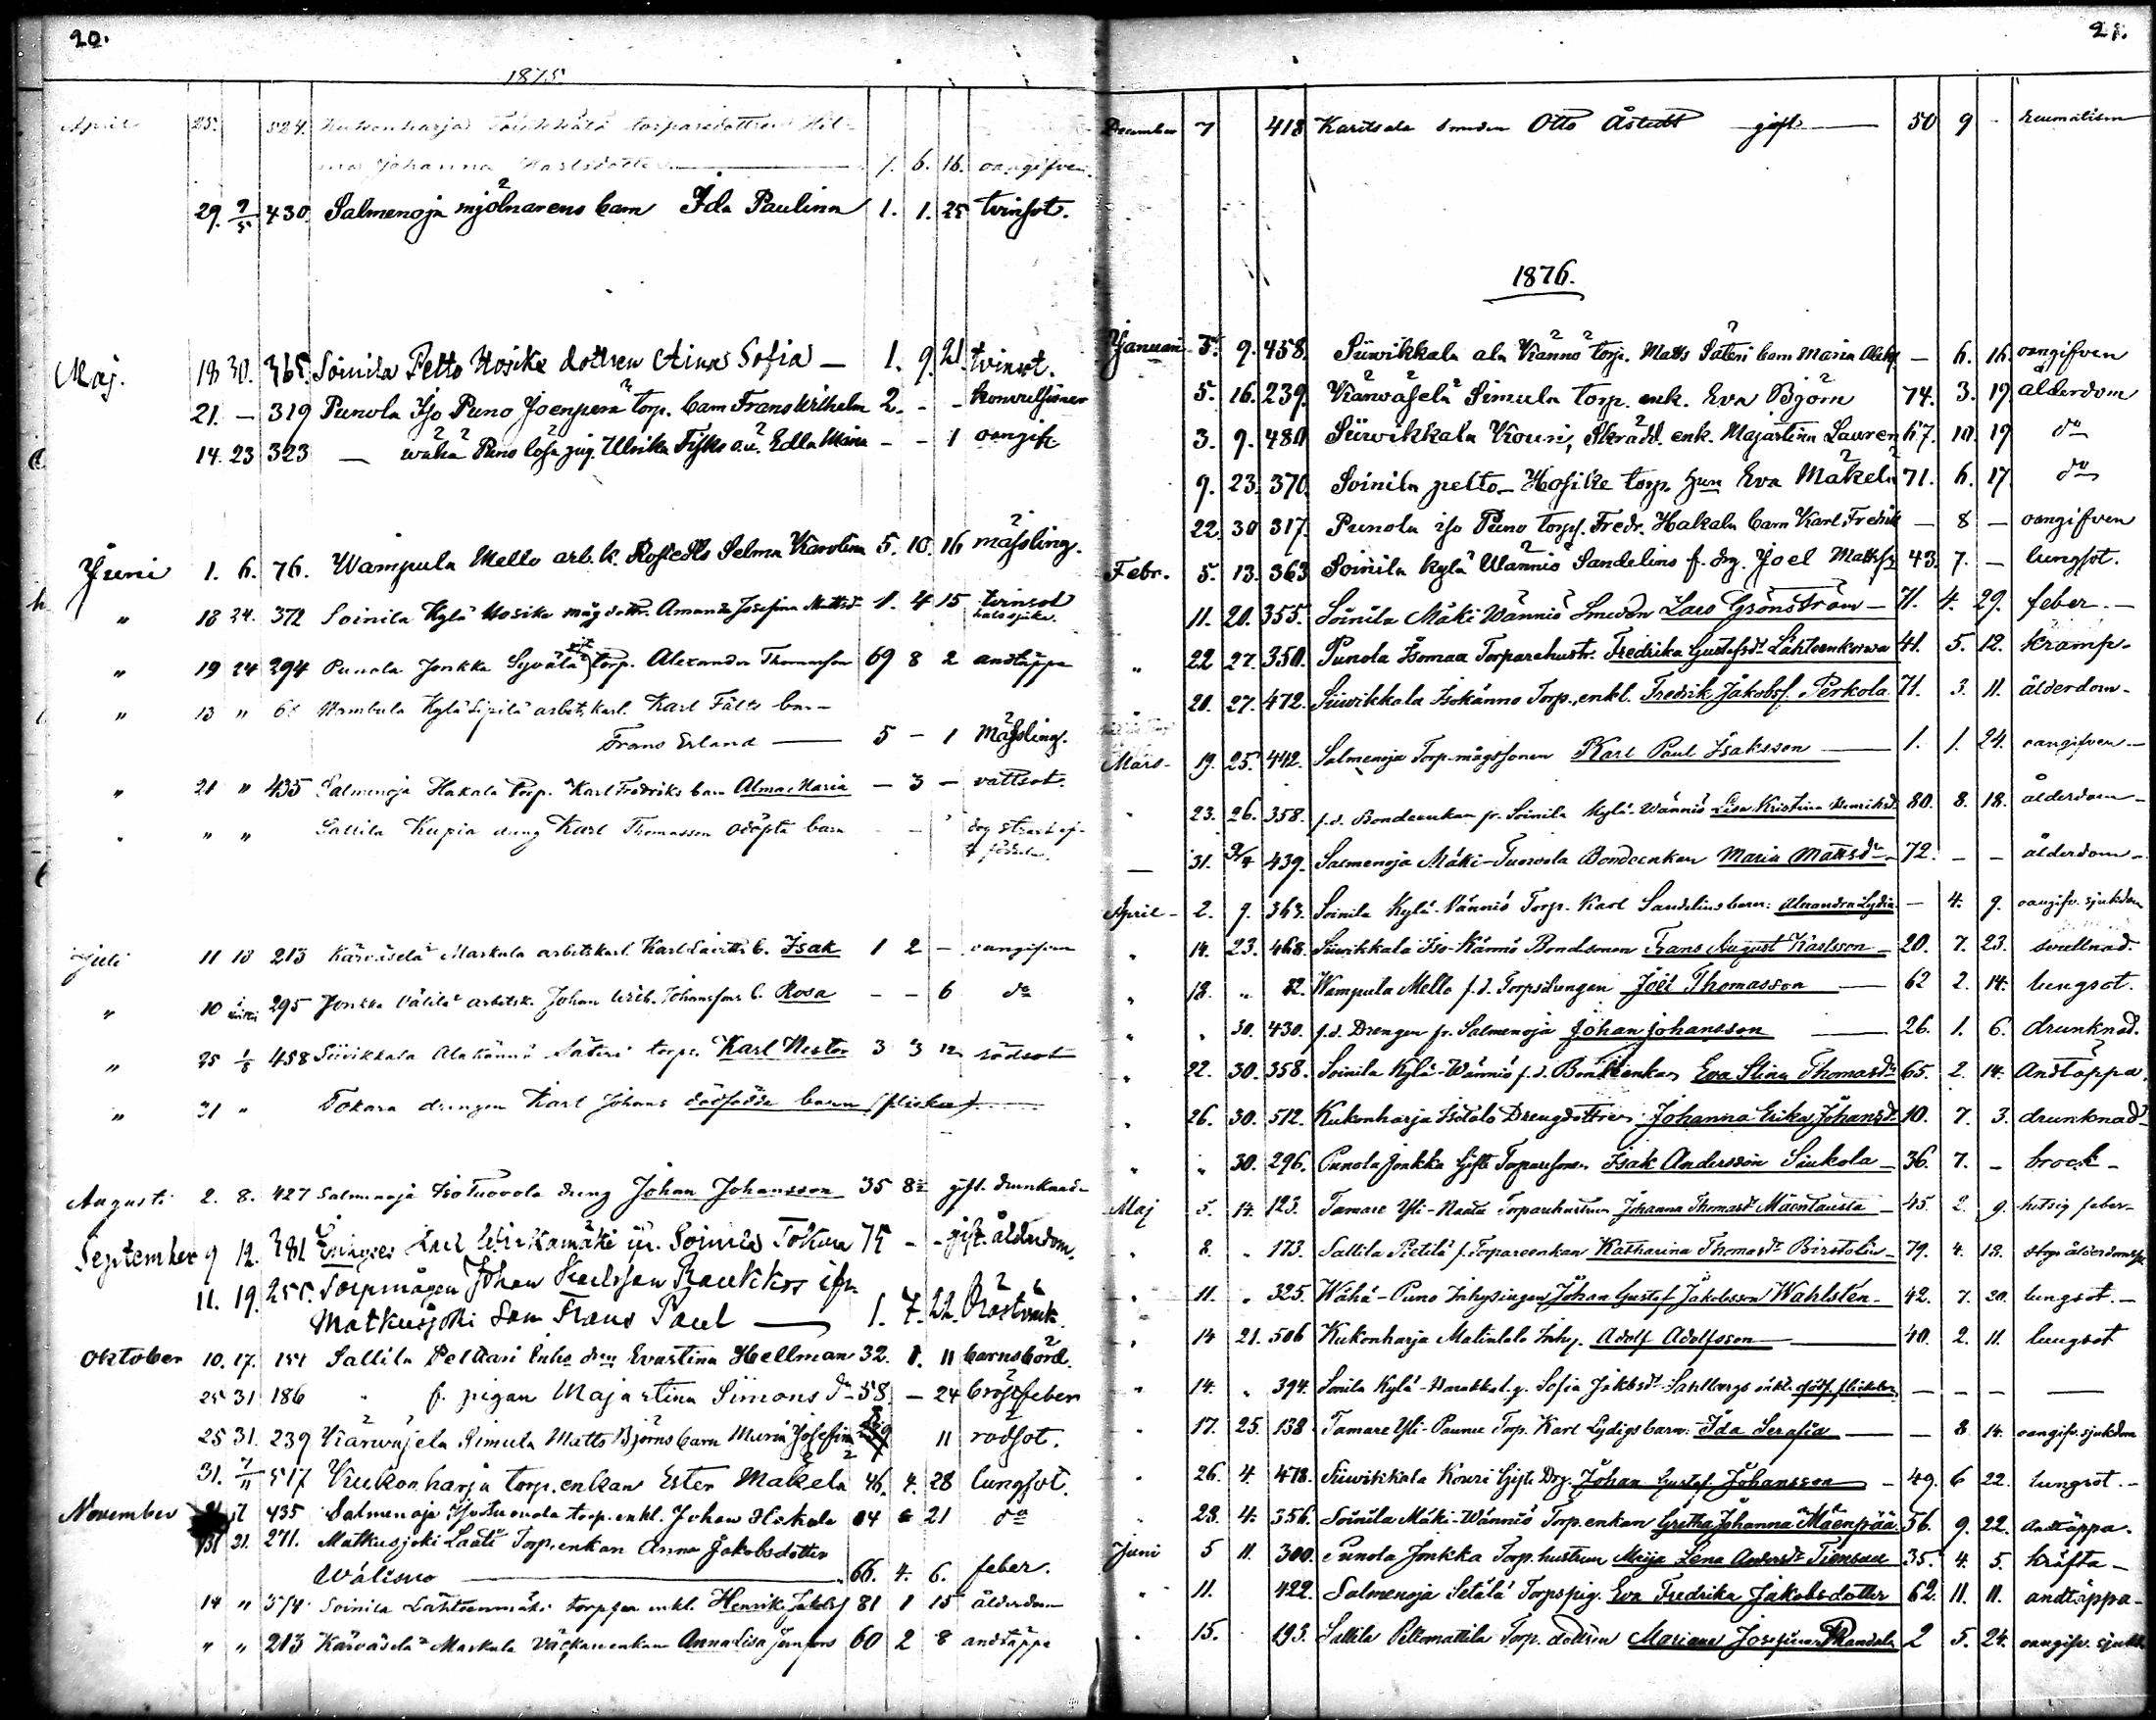 20.
1875
April 25. 524. Kukonharja torparedottren Hil-
ma Johanna Karlsdotter 1. 6. 16. oangifven.
29. 9/5 430. Salmenoja mjölnarens barn Ida Paulina 1. 1. 25 tvinsot.
Maj. 18 30. 365. Soinila Pelto Hosike dottren Aina Sofia — 1. 9. 21. tvinsot.
21. — 319 Punola Iso Puno Joenperä torp. barn Frans Wilhelm 2. - - konvulsioner
14. 23 323 — wähä Puno lösa pig. Ulrika o.ä. Edla Maria - - 1 oangif.
Juni 1. 6. 76. Wampula Mello arb.k. Selma Karolina 5. 10. 16 mässling.
" 18 24. 372 Soinila Kylä Hosike måg dottr. Amanda Josefina Mattsd. 1. 4 15 tvinsot
halssjuka.
" 19 24 294 Punola Jonkka Syvälä torp. Alexander Thomasson 69 8 2 andtäppa
" 13 " Wambula Kylä Sipilä arbets karl. Karl Fälts bar-
Frans Erland — 5 - 1 Mässling.
" 21 " 435 Salmenoja Hakala torp. Karl Fredriks barn Alma Maria — 3 — vattsot.
" " " Sallila Kupia dreng Karl Thomasson odöpta barn - - dog strax ef-
t. födseln.
Juli 11 18 213 Kärväselä Markula arbetskarl. Karl b. Isak 1 2 - oangifven
" 10 295 Jonkka Välilä arbetsk. Johan Wilh. Johanssons b. Rosa - - 6 do
" 25 1/8 458 Siivikkala Alakännö Säteri torpr. Karl Nestor 3 3 12 rödsot
" 31 " Tokara drengen Karl Johans dödfödde barn (flicka)
Augusti 2. 8. 427 Salmenoja Iso Tuovola dreng Johan Johansson 35 8 gift. drunknad
September 9 12. 381 Karl Soinila Tokara 75 - - gift. ålderdom.
11. 19. 255. Torpmågen Johan Karlsson ifr.
Matkusjoki Son Frans Paul — 1. 7. 22. Bröstvärk.
Oktober 10. 17. 151 Sallila Pelttari Enho Evastina Hellman 32. 1. 11 barnsbörd.
25 31 186 " f. pigan Maja Stina Simons dr 58. — 24 bröstfeber
25 31. 239 Kärwäselä Simula Matts Björns barn Maria Josefina 11 rödsot.
31. 7/11 517 Kukonharja torp. enkan Ester Mäkelä 46. 4. 28 lungsot.
November 435 Salmenoja Iso Tuovola torp. enkl. Johan Hakala 21 do
21. 271. Matkusjoki Laati Torp. enkan Anna Jakobsdotter
Wälisuo — 66. 4. 6. feber.
14 " 374 Soinila Lähteenmäki torppar enkl. Henrik Jakobs. 81 1 15 ålderdom
" " 213 Kärväselä Markula enkan Anna Lisa 60 2 8 andtäppa
21.
December 7 418 Karitsala smeden Otto Åstedt gift — 50 9 - reumatism
1876.
Januari 3. 9. 458. Siiwikkala ala Kännö torp. Matts Säteri barn Maria — 6. 16. oangifven
5. 16. 239. Kärwäselä Simula torp. enk. Eva Björn 74. 3. 19 ålderdom
3. 9. 480 Siiwikkala Kouri, Skrädd. enk. Majastina Lauren 67. 10. 19 do
9. 23. 370. Soinila pelto-Hosike torp. hun Eva Mäkelä 71. 6. 17 do
22. 30 317. Punola iso Puno torps. Fredr. Hakala barn Karl Fredrik — 8 — oangifven
Febr. 5. 13. 363 Soinila kylä Wännis Sandelins f. drg. Joel Mattss. 43. 7. — lungsot.
11. 20. 355. Soinila Mäki Wännis Smeden Lars Grönström — 71. 4. 29. feber. —
" 22 27. 350. Punola Isomaa Torparehustr. Fredrika Gustafsdr. Lähteenkorwa 41. 5. 12. kramp.
20. 27. 472. Siiwikkala Isokännö Torp., enkl. Fredrik Jakobss. Perkola 71. 3. 11. ålderdom-
Mars- 19. 25. 442. Salmenoja Torp. mågssonen Karl Paul Isaksson — 1. 1. 24. oangifven —
" 23. 26. 358. f.d. Bondeenkan fr. Soinila Kylä-Wännis Lisa Kristina Henriksdr. 80. 8. 18. ålderdom-
— 31. 9/4 439. Salmenoja Mäki-Tuovola Bondeenkan Maria Mattsdr 72. - - ålderdom-
April- 2. 9. 363. Soinila Kylä-Wännis Torp. Karl Sandelins barn: Alexandra Lydia — 4. 9. oangifv. sjukdom
" 14. 23. 468. Siiwikkala Iso-Kännö Bondsonen Frans August Karlsson — 20. 7. 23. svullnad.
" 18. " 82. Wampula Mello f.d. Torpsdrengen Joël Thomasson — 62 2. 14. lungsot.
" " 30. 430. f.d. Drengen fr. Salmenoja Johan Johansson — 26. 1. 6. drunknad.
" 22. 30. 358. Soinila Kylä-Wännis f.d. Bondenkan Eva Stina Thomasdr 65. 2. 14. Andtäppa.
" 26. 30. 512. Kukonharja Isotalo Drengdottren Johanna Erika Johansdr 10. 7. 3. drunknad-
" " 30. 296. Punola Jonkka Gifte Torparesonen Isak Andersson Siukola — 36. 7. - brock-
Maj 5. 14. 123. Tamare Yli-Naatu Torparehustrun Johanna Thomasdr Mäentausta — 45. 2. 9. hetsig feber-
" 8. " 173. Sallila Pietilä f. Torpareenkan Katharina Thomasdr — 79. 4. 18. ålderdoms
" 11. " 325. Wähä-Puno Inhysingen Johan Gustaf Jakobsson Wahlstén- 42. 7. 20. lungsot. —
" 14 21. 506 Kukonharja Matintalo Inhy. Adolf Adolfsson — 40. 2. 11. lungsot
" 14. " 394. Soinila Kylä- g. Sofia Jakobsdr Sahlbergs oäkta dödf. flickebarn — — — —
" 17. 25. 138 Tamare Yli-Paunu Torp. Karl Lydigs barn: Ida Serafia — — 8 14. oangifv. sjukdom
" 26. 4. 478. Siiwikkala Kouri Gifte Drg. Johan Gustaf Johansson — 49. 6 22. lungsot. —
" 28. 4. 356. Soinila Mäki-Wännis Torp. enkan Gretha Johanna Mäenpää 56. 9. 22. Andtäppa.
Juni 5 11. 300. Punola Jonkka Torp. hustrun Maija Lena Andersdr 35. 4. 5. kräfta —
" 11. 422. Salmenoja Setälä Torpspig. Eva Fredrika Jakobsdotter 62. 11. 11. andtäppa-
" 15. 193. Sallila Peltomattila Torp. dottren Mariana Josefina Randala 2 5. 24. oangifv. sjukd.